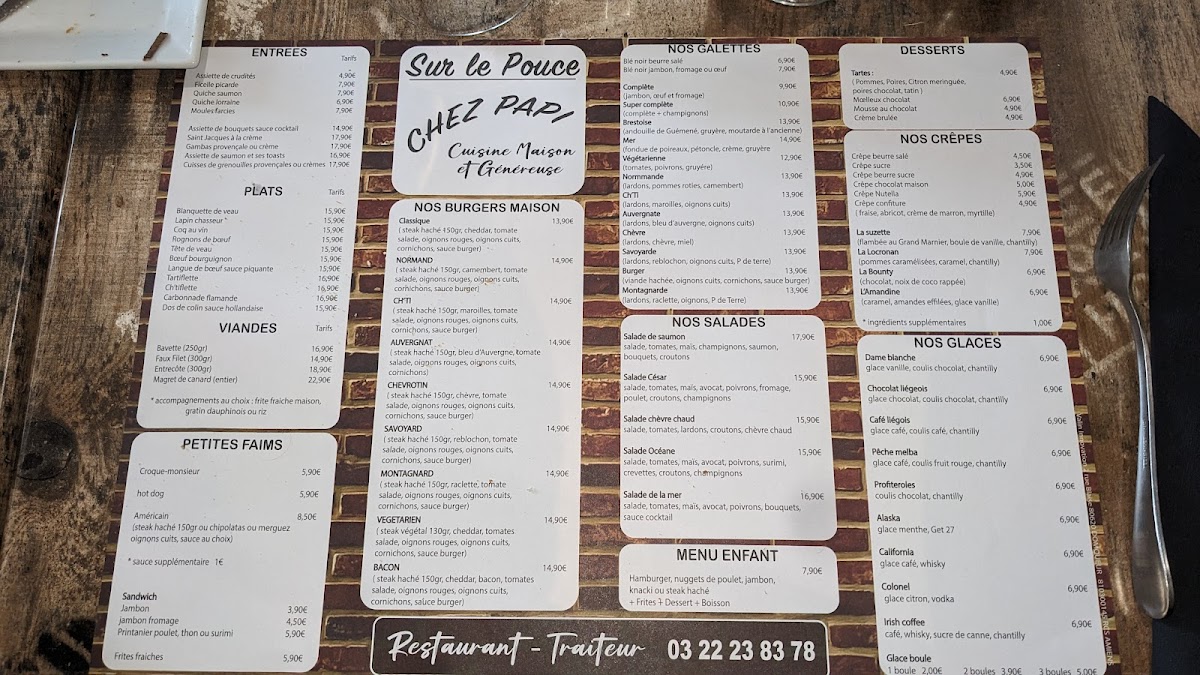 ENTREES
Tarifs
Assiette de crudités 4,90€
Ficelle picarde 7,90€
Quiche saumon 7,90€
Quiche lorraine 6,90€
Moules farcies 7,90€
Assiette de bouquets sauce cocktail 14,90€
Saint Jacques à la crème 17,90€
Gambas provençale ou crème 17,90€
Assiette de saumon et ses toasts 16,90€
Cuisses de grenouilles provençales ou crèmes 17,90€
PLATS
Tarifs
Blanquette de veau 15,90€
Lapin chasseur * 15,90€
Coq au vin 15,90€
Rognons de bœuf 15,90€
Tête de veau 15,90€
Bœuf bourguignon 15,90€
Langue de bœuf sauce piquante 15,90€
Tartiflette 16,90€
Ch'tiflette 16,90€
Carbonnade flamande 16,90€
Dos de colin sauce hollandaise 15,90€
VIANDES
Tarifs
Bavette (250gr) 16,90€
Faux Filet (300gr) 14,90€
Entrecôte (300gr) 18,90€
Magret de canard (entier) 22,90€
* accompagnements au choix : frite fraiche maison,
gratin dauphinois ou riz
PETITES FAIMS
Croque-monsieur 5,90€
hot dog 5,90€
Américain 8,50€
(steak haché 150gr ou chipolatas ou merguez
oignons cuits, sauce au choix)
* sauce supplémentaire 1€
Sandwich
Jambon 3,90€
jambon fromage 4,50€
Printanier poulet, thon ou surimi 5,90€
Frites fraiches 5,90€
Sur le Pouce
CHEZ PAPI
Cuisine Maison
et Généreuse
NOS BURGERS MAISON
Classique 13,90€
( steak haché 150gr, cheddar, tomate
salade, oignons rouges, oignons cuits,
cornichons, sauce burger)
NORMAND 14,90€
( steak haché 150gr, camembert, tomate
salade, oignons rouges, oignons cuits,
cornichons, sauce burger)
CH'TI 14,90€
( steak haché 150gr, maroilles, tomate
salade, oignons rouges, oignons cuits,
cornichons, sauce burger)
AUVERGNAT 14,90€
( steak haché 150gr, bleu d'Auvergne, tomate
salade, oignons rouges, oignons cuits,
cornichons)
CHEVROTIN 14,90€
( steak haché 150gr, chèvre, tomate
salade, oignons rouges, oignons cuits,
cornichons, sauce burger)
SAVOYARD 14,90€
( steak haché 150gr, reblochon, tomate
salade, oignons rouges, oignons cuits,
cornichons, sauce burger)
MONTAGNARD 14,90€
( steak haché 150gr, raclette, tomate
salade, oignons rouges, oignons cuits,
cornichons, sauce burger)
VEGETARIEN 14,90€
( steak végétal 130gr, cheddar, tomates
salade, oignons rouges, oignons cuits,
cornichons, sauce burger)
BACON 14,90€
( steak haché 150gr, cheddar, bacon, tomates
salade, oignons rouges, oignons cuits,
cornichons, sauce burger)
NOS GALETTES
Blé noir beurre salé 6,90€
Blé noir jambon, fromage ou œuf 7,90€
Complète 9,90€
(jambon, œuf et fromage)
Super complète 10,90€
(complète + champignons)
Brestoise 13,90€
(andouille de Guémené, gruyère, moutarde à l'ancienne)
Mer 14,90€
(fondue de poireaux, pétoncle, crème, gruyère
Végétarienne 12,90€
(tomates, poivrons, gruyère)
Normmande 13,90€
(lardons, pommes roties, camembert)
Ch'Ti 13,90€
(lardons, maroilles, oignons cuits)
Auvergnate 13,90€
(lardons, bleu d'auvergne, oignons cuits)
Chèvre 13,90€
(lardons, chèvre, miel)
Savoyarde 13,90€
(lardons, reblochon, oignons cuits, P de terre)
Burger 13,90€
(viande hachée, oignons cuits, cornichons, sauce burger)
Montagnarde 13,90€
(lardons, raclette, oignons, P de Terre)
NOS SALADES
Salade de saumon 17,90€
salade, tomates, maïs, champignons, saumon,
bouquets, croutons
Salade César 15,90€
salade, tomates, maïs, avocat, poivrons, fromage,
poulet, croutons, champignons
Salade chèvre chaud 15,90€
salade, tomates, lardons, croutons, chèvre chaud
Salade Océane 15,90€
salade, tomates, maïs, avocat, poivrons, surimi,
crevettes, croutons, champignons
Salade de la mer 16,90€
salade, tomates, maïs, avocat, poivrons, bouquets,
sauce cocktail
MENU ENFANT
7,90€
Hamburger, nuggets de poulet, jambon,
knacki ou steak haché
+ Frites + Dessert + Boisson
Restaurant - Traiteur 03 22 23 83 78
DESSERTS
Tartes : 4,90€
( Pommes, Poires, Citron meringuée,
poires chocolat, tatin )
Mœlleux chocolat 6,90€
Mousse au chocolat 4,90€
Crème brulée 4,90€
NOS CRÊPES
Crêpe beurre salé 4,50€
Crêpe sucre 3,50€
Crêpe beurre sucre 4,90€
Crêpe chocolat maison 5,00€
Crêpe Nutella 5,90€
Crêpe confiture 4,90€
( fraise, abricot, crème de marron, myrtille)
La suzette 7,90€
(flambée au Grand Marnier, boule de vanille, chantilly)
La Locronan 7,90€
(pommes caramélisées, caramel, chantilly)
La Bounty 6,90€
(chocolat, noix de coco rappée)
L'Amandine 6,90€
(caramel, amandes effilées, glace vanille)
* ingrédients supplémentaires 1,00€
NOS GLACES
Dame blanche 6,90€
glace vanille, coulis chocolat, chantilly
Chocolat liégeois 6,90€
glace chocolat, coulis chocolat, chantilly
Café liégois 6,90€
glace café, coulis café, chantilly
Pêche melba 6,90€
glace café, coulis fruit rouge, chantilly
Profiteroles 6,90€
coulis chocolat, chantilly
Alaska 6,90€
glace menthe, Get 27
California 6,90€
glace café, whisky
Colonel 6,90€
glace citron, vodka
Irish coffee 6,90€
café, whisky, sucre de canne, chantilly
Glace boule
1 boule 2,00€ 2 boules 3,90€ 3 boules 5,00€